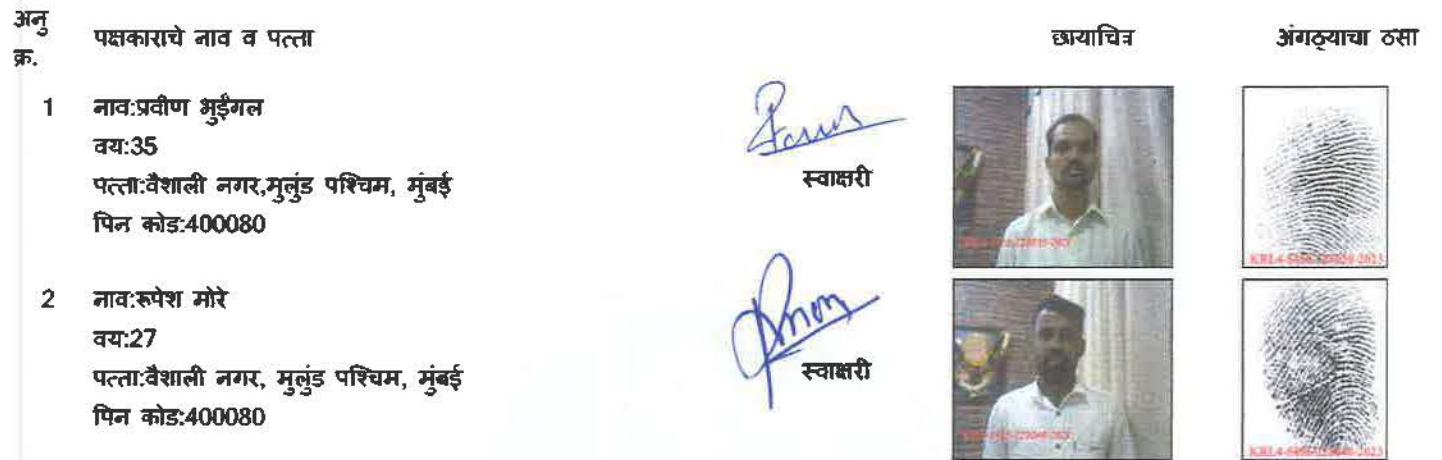 अनु क्र. पक्षकाराचे नाव व पत्ता छायाचित्र अंगठ्याचा ठसा
1 नाव:प्रवीण भुईंगल
वय:35
पत्ता:वैशाली नगर,मुलुंड पश्चिम, मुंबई
पिन कोड:400080
स्वाक्षरी
2 नाव:रूपेश मोरे
वय:27
पत्ता:वैशाली नगर, मुलुंड पश्चिम, मुंबई
पिन कोड:400080
स्वाक्षरी